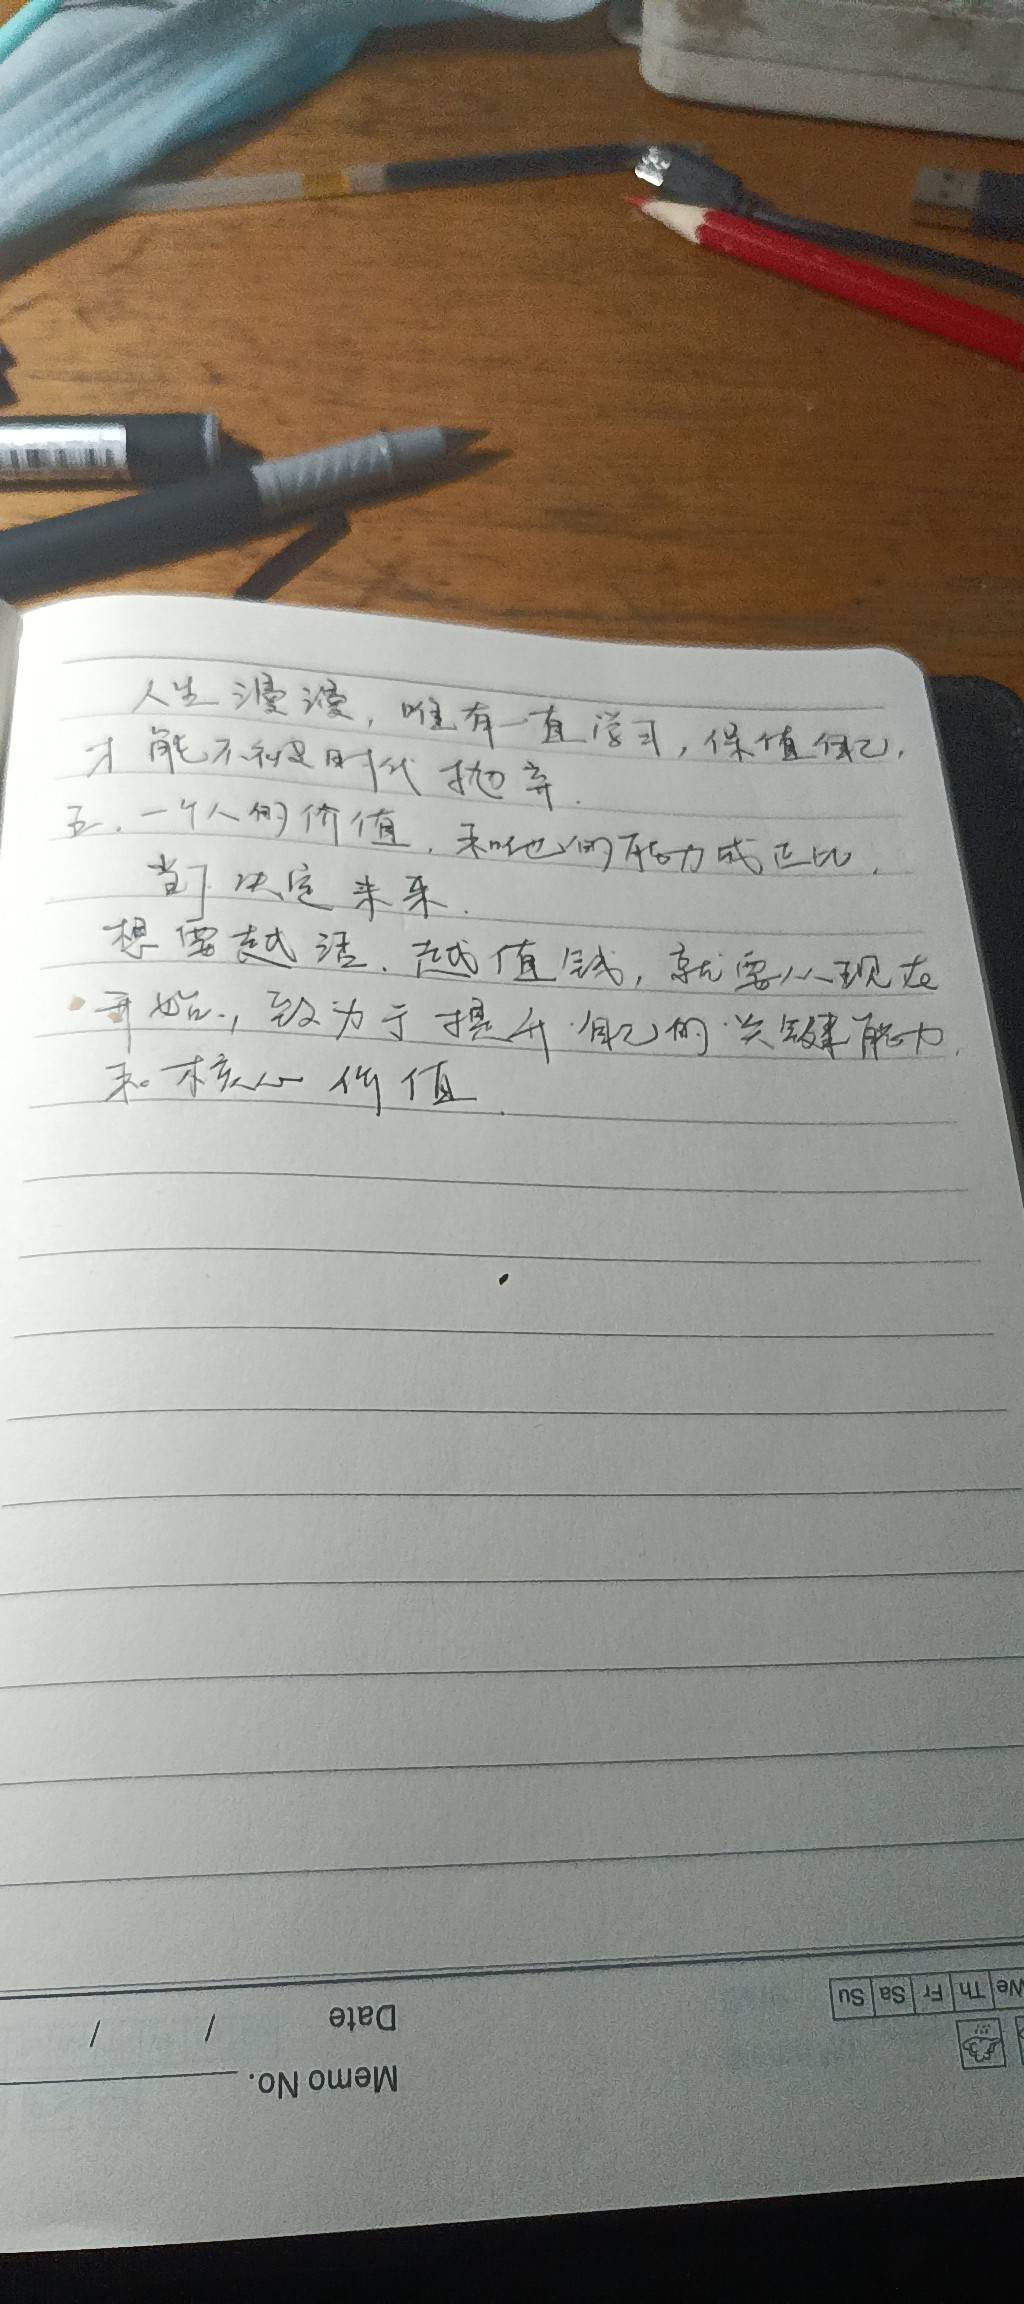 人生漫漫，唯有一直学习，保值自己，
才能不被时代抛弃.
五.一个人的价值，和他的能力成正比，
当下决定未来.
想要越活、越值钱，就要从现在
开始，致力于提升自己的关键能力，
和核心价值.
We Th Fr Sa Su
Date / /
Memo No.